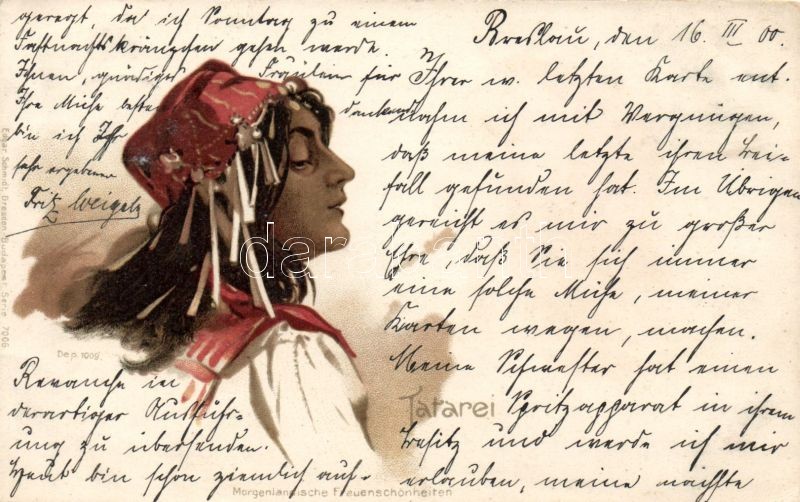 Breslau, den 16. III 00.
Ihrer w. letzten Karte ent-
nahm ich mit Vergnügen,
daß meine letzte ihren Bei-
fall gefunden hat. Im Übrigen
gereicht es mir zu großer
Ehre, daß Sie sich immer
eine solche Mühe, meiner
Karten wegen, machen.
Meine Schwester hat einen
Spritzapparat in ihrem
Besitz und werde ich mir
erlauben, meine nächste
Revanche in
derartiger Ausführ-
ung zu übersenden.
Heut bin schon ziemlich auf-
geregt, da ich Sonntag zu einem
Fastnachtskränzchen gehen werde.
Ihnen, gnädiges Fräulein für
Ihre Mühe bestens dankend
bin ich Ihr
sehr ergebener
Fritz Weigelt
Tatarei
Dep. 1009.
Morgenländische Frauenschönheiten
Edgar Schmidt, Dresden, Budapest, Serie 7066
darabanth